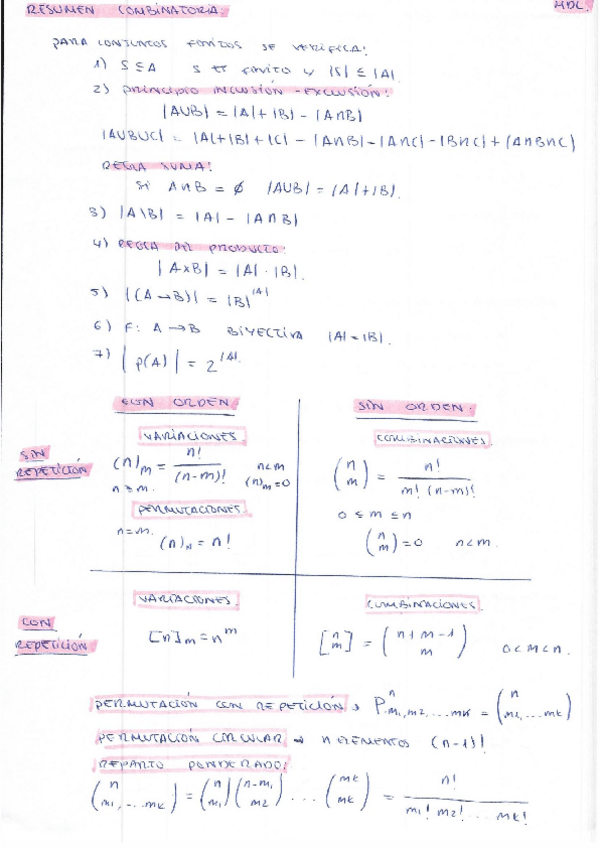 RESUMEN COMBINATORIA: MDL.
PARA CONJUNTOS FINITOS SE VERIFICA:
1) S ⊆ A S es FINITO y |S| ≤ |A|.
2) PRINCIPIO INCLUSIÓN-EXCLUSIÓN:
|A∪B| = |A| + |B| - |A∩B|
|A∪B∪C| = |A|+|B|+|C| - |A∩B| - |A∩C| - |B∩C| + |A∩B∩C|
REGLA SUMA:
SI A∩B = ∅ |A∪B| = |A|+|B|.
3) |A\B| = |A| - |A∩B|
4) REGLA DEL PRODUCTO:
|A×B| = |A| · |B|.
5) |(A→B)| = |B|^|A|
6) F: A→B BIYECTIVA |A| = |B|.
7) |P(A)| = 2^|A|.
CON ORDEN SIN ORDEN.
VARIACIONES. COMBINACIONES.
SIN REPETICIÓN (n)_m = n!/(n-m)! n<m (n)_m=0 n ≥ m. (n m) = n!/(m! (n-m)!)
0 ≤ m ≤ n
PERMUTACIONES.
n=m. (n)_n = n! (n m) = 0 n<m.
VARIACIONES. COMBINACIONES.
CON REPETICIÓN [n]_m = n^m [n m] = (n+m-1 m) 0<m<n.
PERMUTACIÓN CON REPETICIÓN → P^n_m1,m2,...mk = (n m1,...mk)
PERMUTACIÓN CIRCULAR → n ELEMENTOS (n-1)!
REPARTO PONDERADO:
(n m1,...mk) = (n m1)(n-m1 m2)...(mk mk) = n!/(m1! m2!... mk!)